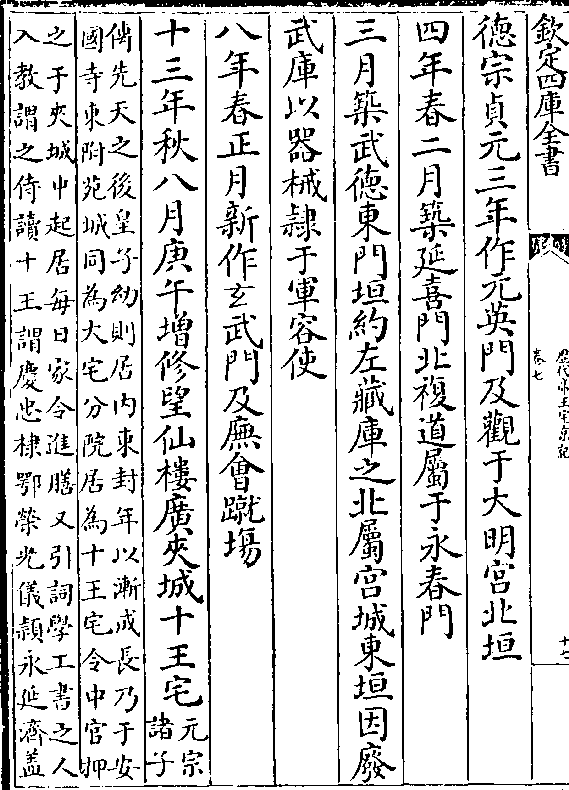 欽定四庫全書
歷代帝王宅京記
卷七
十七
德宗貞元三年作元英門及觀于大明宮北垣
四年春二月築延喜門北複道屬于永春門
三月築武德東門垣約左藏庫之北屬宮城東垣因廢
武庫以器械隸于軍容使
八年春正月新作玄武門及廡會蹴場
十三年秋八月庚午增修望仙樓廣夾城十王宅元宗諸子
傋先天之後皇子幼則居内東封年以漸成長乃于安
國寺東附苑城同為大宅分院居為十王宅令中官押
之于夾城中起居每日家令進膳又引詞學工書之人
入教謂之侍讀十王謂慶忠棣鄂榮光儀潁永延濟盖